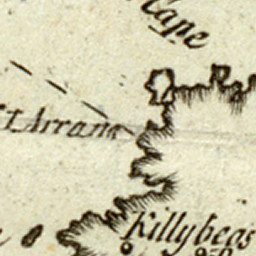 Cape
I Arrana
Killybegs